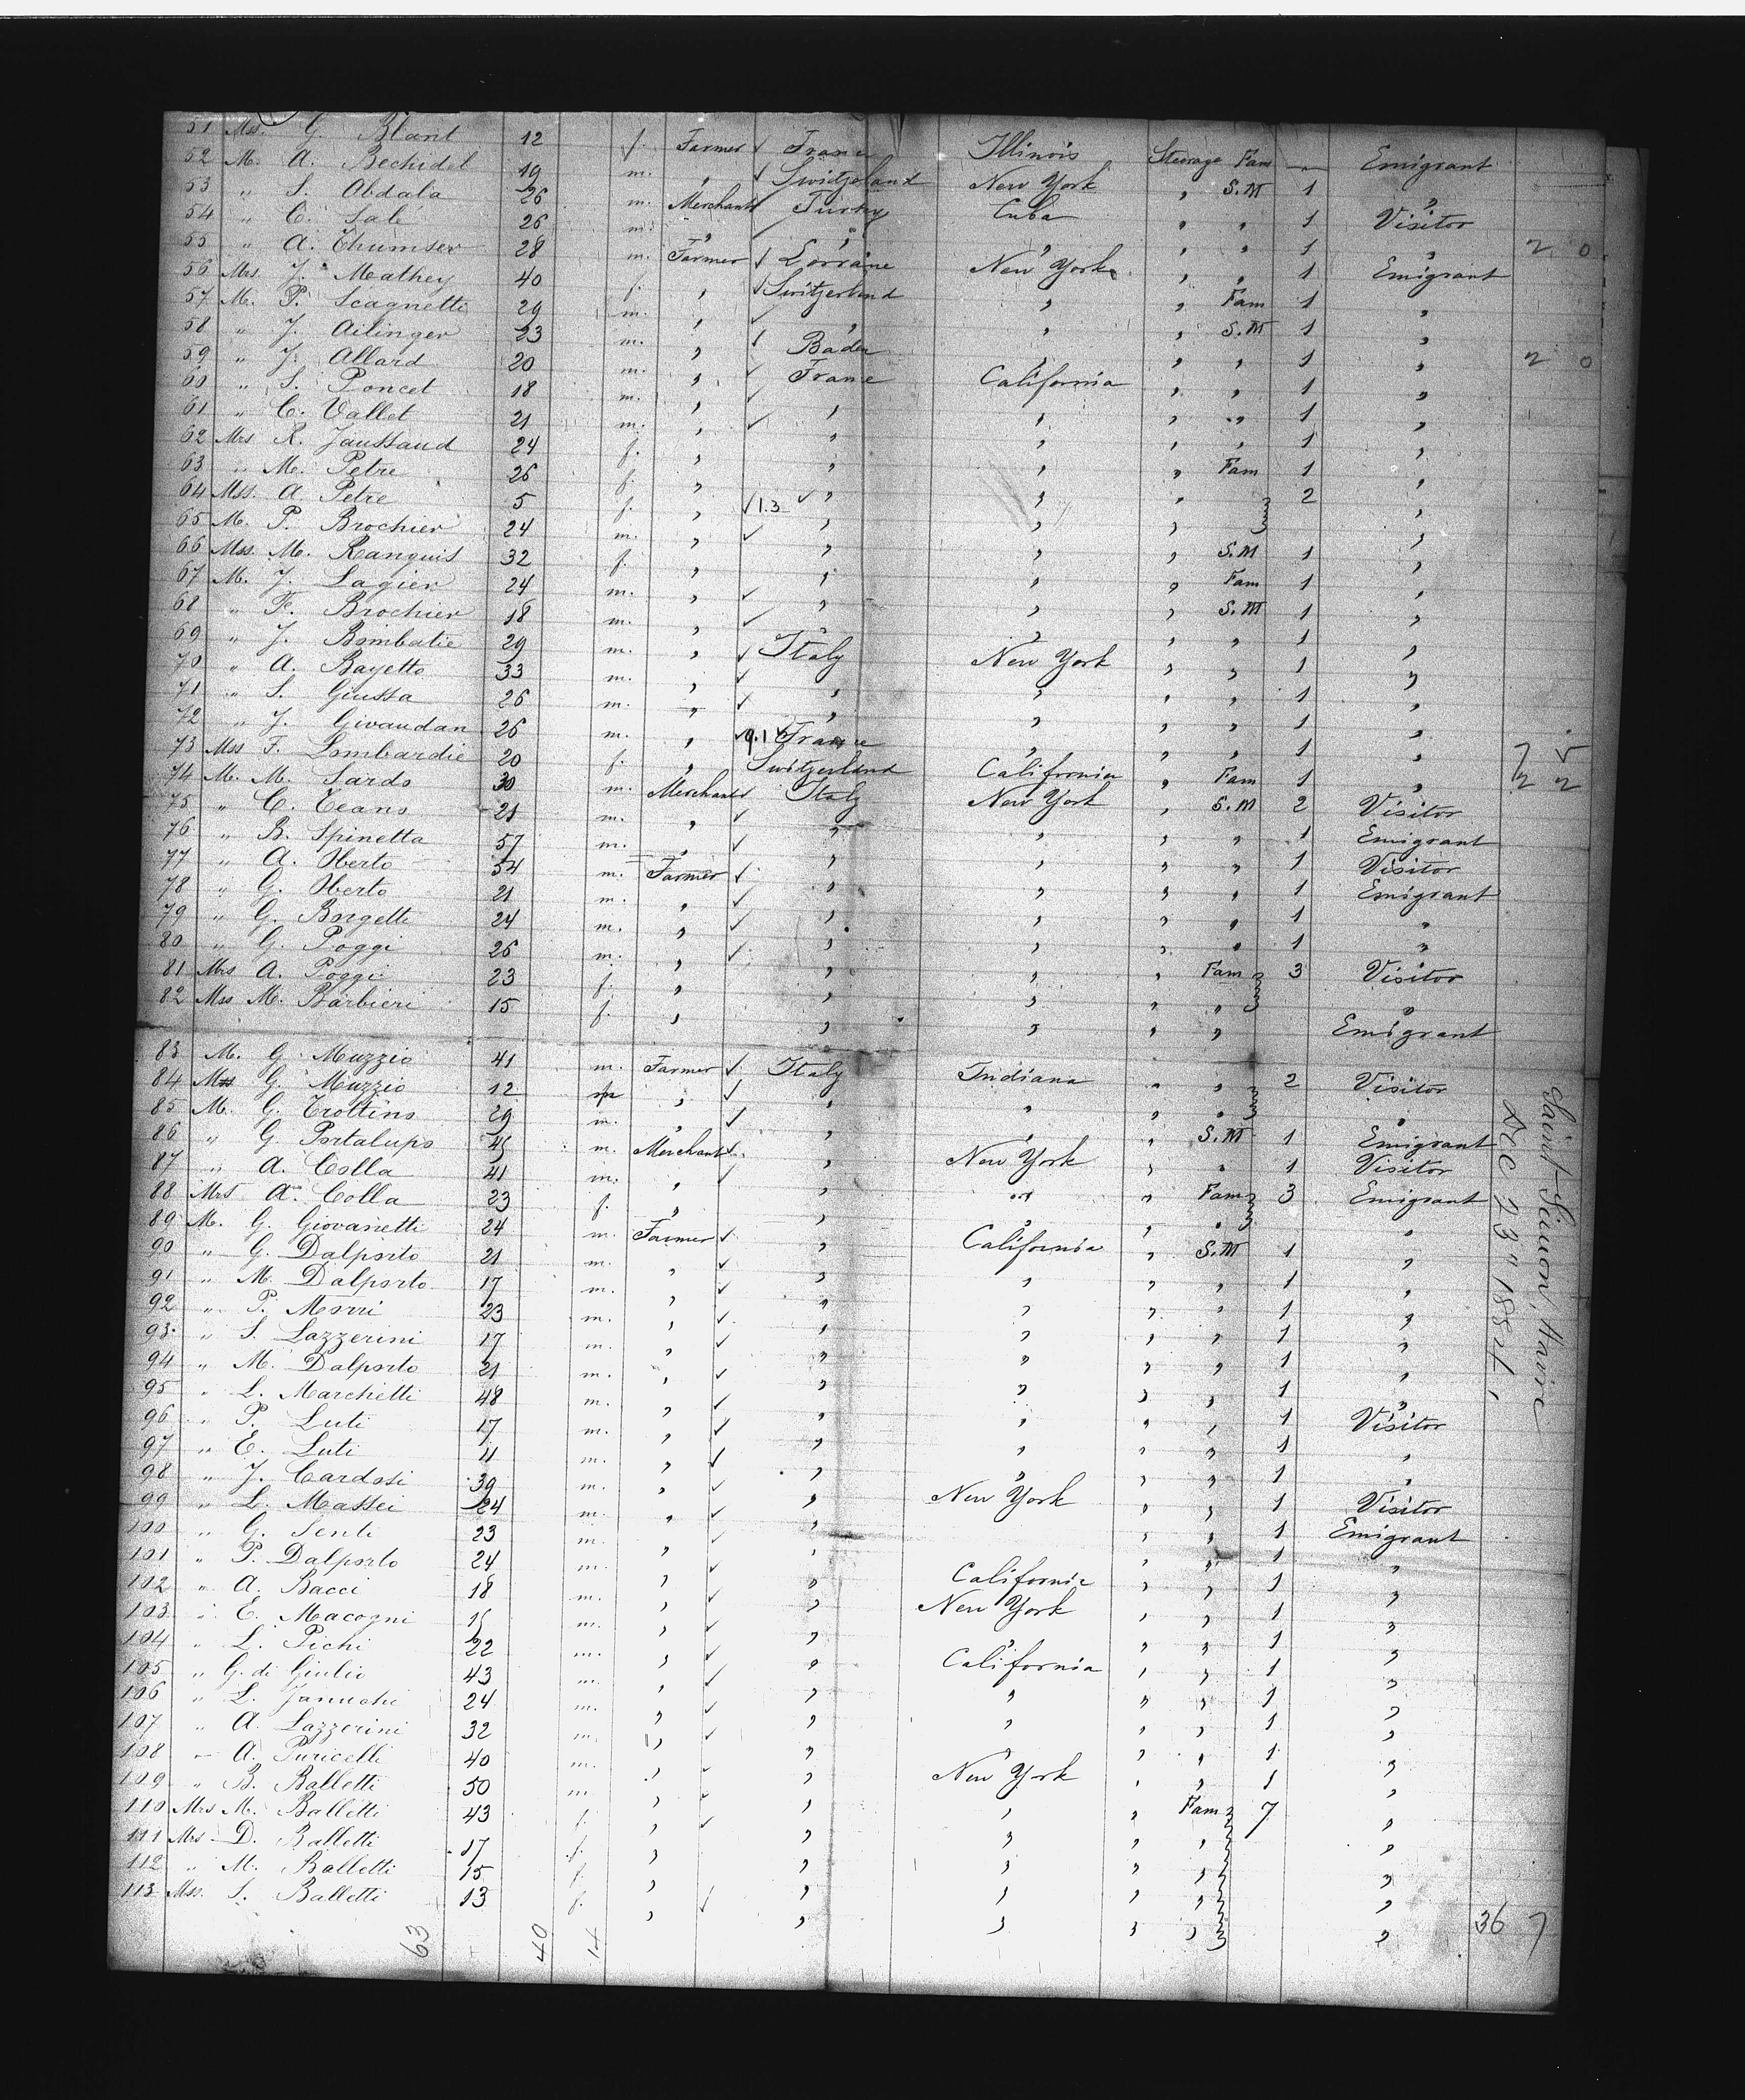 51 Mss. G. Blant 12 f Farmer ✓ France Illinois Steerage Fam — Emigrant
52 M. A. Bechidel 19 m. " ✓ Switzerland New York " S.M 1 "
53 " S. Abdala 26 m. Merchant ✓ Turkey Cuba " " 1 Visitor
54 " C. Sale 26 m. " " " " " 1 "
55 " A. Thumser 28 m. Farmer ✓ Lorraine New York " " 1 Emigrant
56 Mrs. J. Mathey 40 f. " ✓ Switzerland " " Fam 1 "
57 M. P. Scagnetti 29 m. " ✓ " " " S.M 1 "
58 " J. Ailinger 23 m. " ✓ Baden " " " 1 "
59 " J. Allard 20 m. " ✓ France California " " 1 "
60 " S. Poncet 18 m. " ✓ " " " " 1 "
61 " C. Vallet 21 m. " ✓ " " " " 1 "
62 Mrs R. Jaussaud 24 f. " " " " Fam 1 "
63 " M. Petre 26 f. " " " " 2 "
64 Mss. A. Petre 5 f. " ✓ 1.3 ✓ " " " "
65 M. P. Brochier 24 m. " ✓ " " " S.M 1 "
66 Mss. M. Ranguis 32 f. " " " " Fam 1 "
67 M. J. Lagier 24 m. " ✓ " " " S.M 1 "
68 " F. Brochier 18 m. " ✓ " " " " 1 "
69 " J. Bombatie 29 m. " ✓ Italy New York " " 1 "
70 " A. Bayetto 33 m. " ✓ " " " " 1 "
71 " S. Giussa 26 m. " ✓ " " " " 1 "
72 " J. Givaudan 26 m. " ✓ France " " " 1 "
73 Mss F. Lombardie 20 f. " Switzerland California " Fam 1 "
74 M. M. Sardo 30 m. Merchant ✓ Italy New York " S.M 2 Visitor
75 " C. Teano 21 m. " ✓ " " " " 1 Emigrant
76 " B. Spinetta 57 m. " ✓ " " " " 1 Visitor
77 " A. Oberto 54 m. Farmer ✓ " " " " 1 Emigrant
78 " G. Oberto 21 m. " ✓ " " " " 1 "
79 " G. Borgetti 24 m. " ✓ " " " " 1 "
80 " G. Poggi 26 m. " ✓ " " " Fam 3 Visitor
81 Mrs A. Poggi 23 f. " " " " " "
82 Mss M. Barbieri 15 f. " " " " " Emigrant
83 M. G. Muzzio 41 m. Farmer ✓ Italy Indiana " " 2 Visitor
84 G. Muzzio 12 " ✓ " " " " "
85 M. G. Trottino 29 m. " ✓ " " " S.M 1 Emigrant
86 " G. Portalupo 45 m. Merchant ✓ " New York " " 1 Visitor
87 " A. Colla 41 m. " ✓ " " " Fam 3 Emigrant
88 Mrs A. Colla 23 f. " " " " " "
89 M. G. Giovanetti 24 m. Farmer ✓ " California " S.M 1 "
90 " G. Dalporto 21 m. " ✓ " " " " 1 "
91 " M. Dalporto 17 m. " ✓ " " " " 1 "
92 " P. Morri 23 m. " ✓ " " " " 1 "
93 " S. Lazzerini 17 m. " ✓ " " " " 1 "
94 " M. Dalporto 21 m. " ✓ " " " " 1 "
95 " L. Marchetti 48 m. " ✓ " " " " 1 Visitor
96 " P. Luti 17 m. " ✓ " " " " 1 "
97 " E. Luti 11 m. " ✓ " " " " 1 "
98 " J. Cardosi 39 m. " ✓ " New York " " 1 Visitor
99 " L. Massei 24 m. " ✓ " " " 1 Emigrant
100 " G. Senti 23 m. " ✓ " " " 1 "
101 " P. Dalporto 24 m. " ✓ " California " " 1 "
102 " A. Bacci 18 m. " ✓ " New York " " 1 "
103 " E. Macogni 15 m. " ✓ " " " " 1 "
104 " L. Pichi 22 m. " ✓ " California " " 1 "
105 " G. di Giulio 43 m. " ✓ " " " " 1 "
106 " L. Januchi 24 m. " ✓ " " " " 1 "
107 " A. Lazzerini 32 m. " ✓ " " " " 1 "
108 " A. Puricelli 40 m. " ✓ " New York " " 1 "
109 " B. Balletti 50 m. " ✓ " " " Fam 7 "
110 Mrs M. Balletti 43 f. " ✓ " " " " "
111 Mrs D. Balletti 17 f. " " " " " "
112 " M. Balletti 15 f. " " " " " "
113 Mss. S. Balletti 13 f. " ✓ " " " " "
63 40 14
2 0
2 0
7 5
2 2
36 7
Saint-Simon, Havre
Dec 23" 1884,